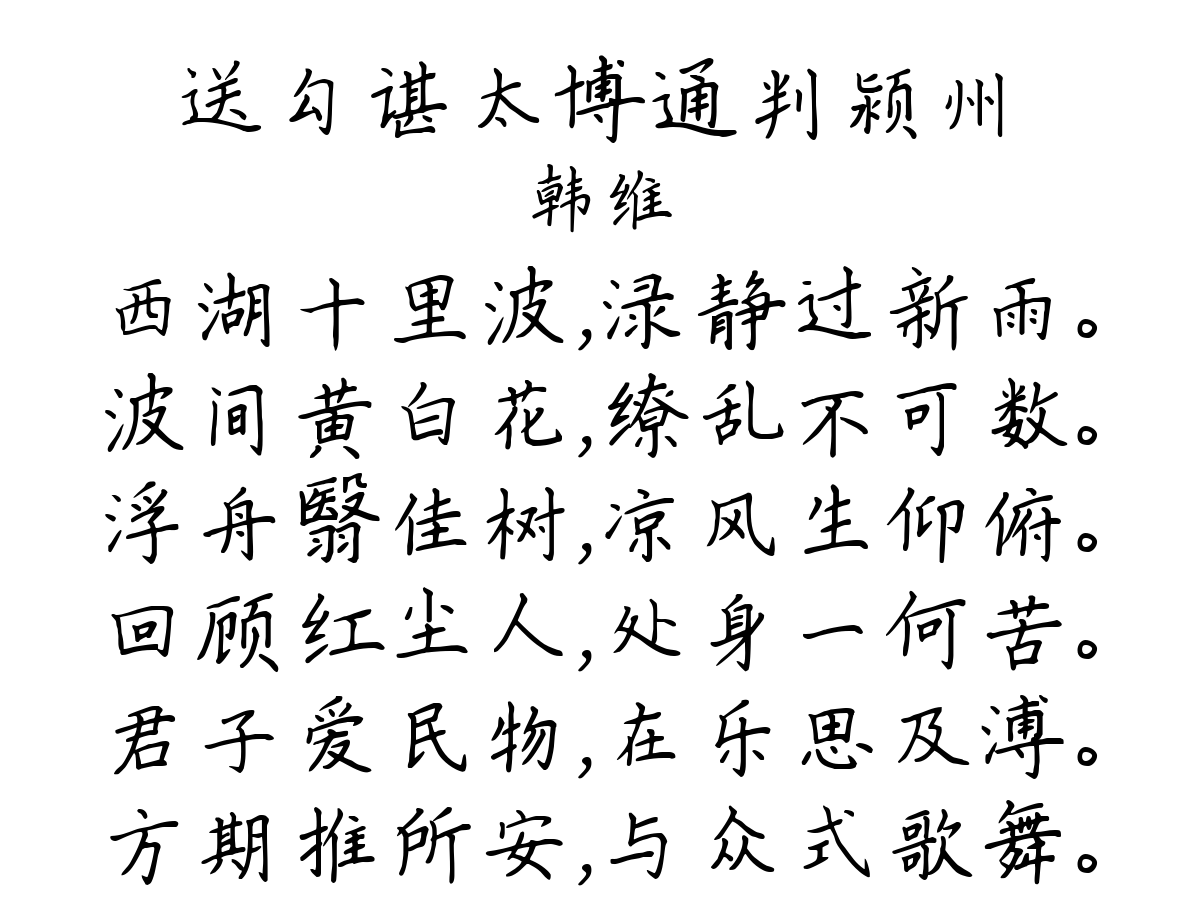 送勾谌太博通判颍州
韩维
西湖十里波,渌静过新雨。
波间黄白花,缭乱不可数。
浮舟翳佳树,凉风生仰俯。
回顾红尘人,处身一何苦。
君子爱民物,在乐思及溥。
方期推所安,与众式歌舞。